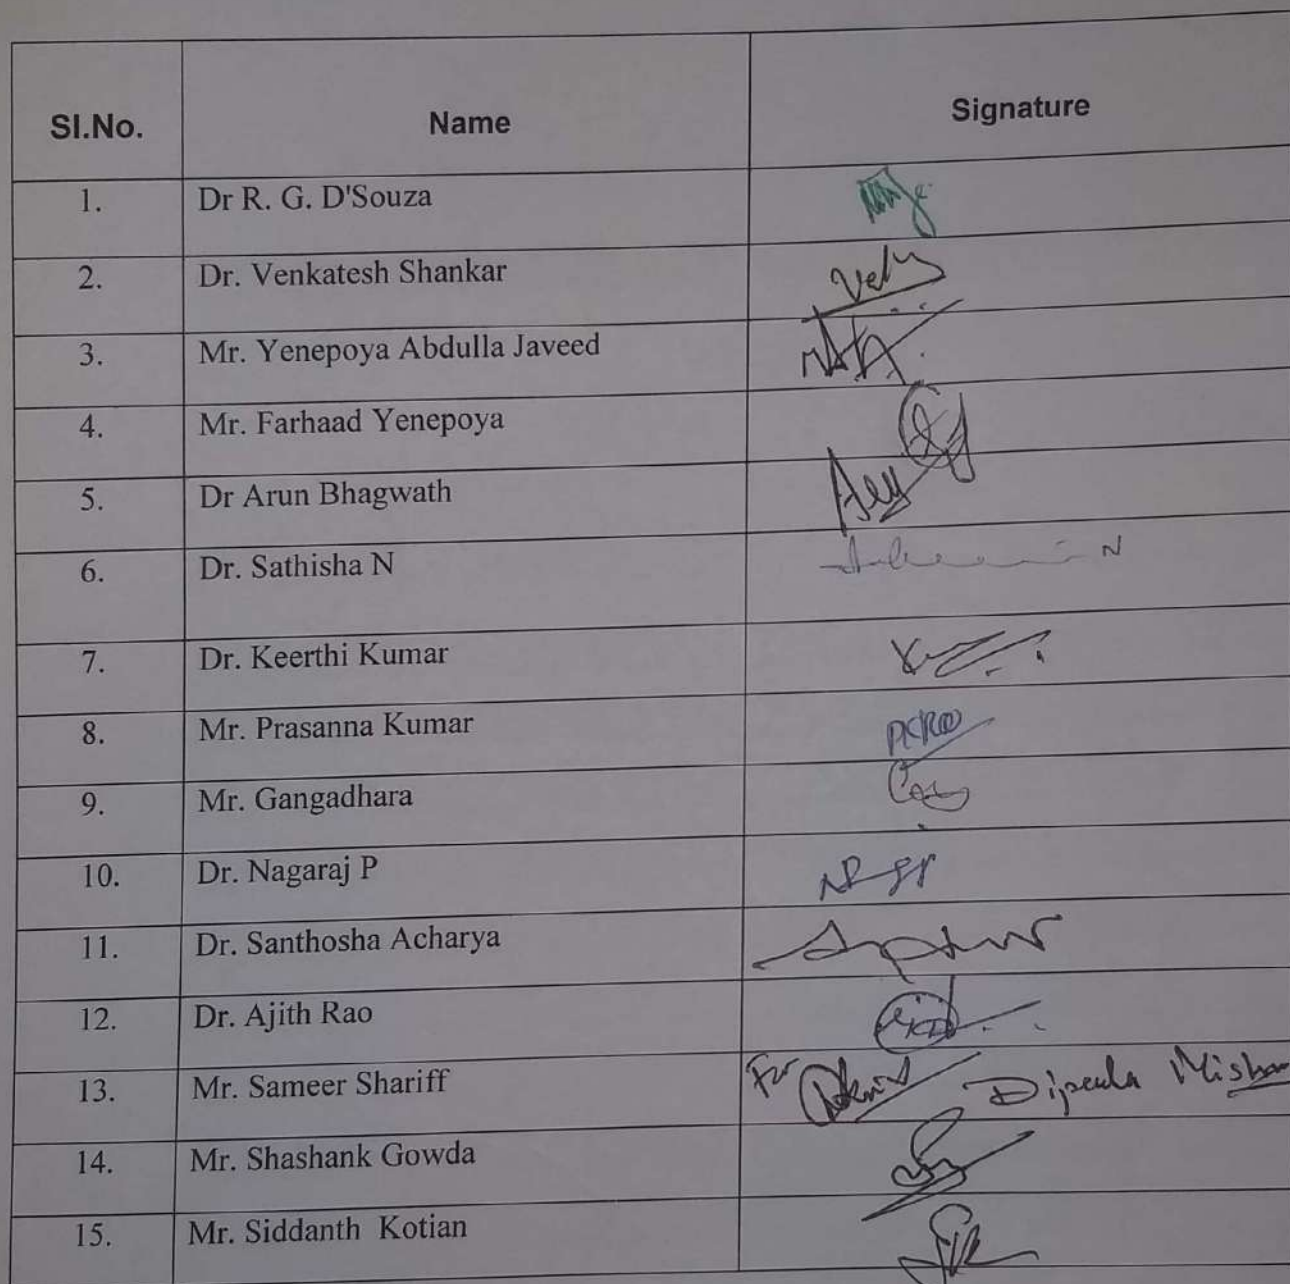 Sl.No. Name Signature
1. Dr R. G. D'Souza
2. Dr. Venkatesh Shankar
3. Mr. Yenepoya Abdulla Javeed
4. Mr. Farhaad Yenepoya
5. Dr Arun Bhagwath
6. Dr. Sathisha N N
7. Dr. Keerthi Kumar
8. Mr. Prasanna Kumar
9. Mr. Gangadhara
10. Dr. Nagaraj P
11. Dr. Santhosha Acharya
12. Dr. Ajith Rao
13. Mr. Sameer Shariff For
14. Mr. Shashank Gowda
15. Mr. Siddanth Kotian